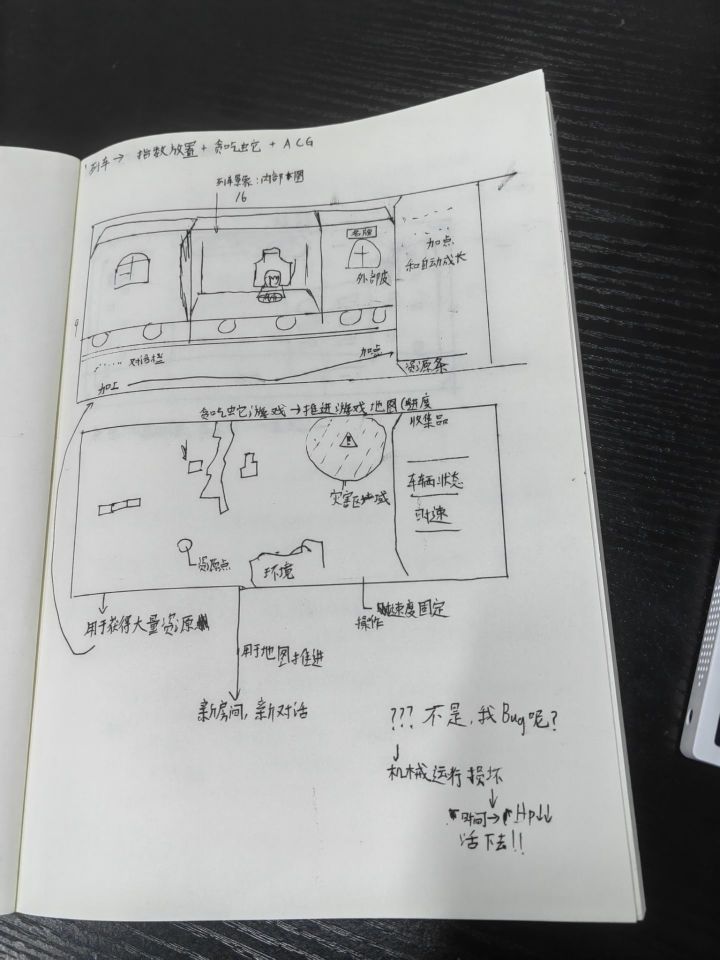 列车→ 指数放置+贪吃蛇+ACG
列车景象:内部截图
16
名牌
外部皮
加点
和自动成长
对话栏
加点
资源条
加工
贪吃蛇游戏→推进游戏地图(进度
收集品
车辆状态
时速
灾害区域
资源点
环境
用于获得大量资源
速度固定
操作
用于地图推进
新房间,新对话
???不是,我Bug呢?
机械运行损坏
时间→Hp↓↓
活下去!!